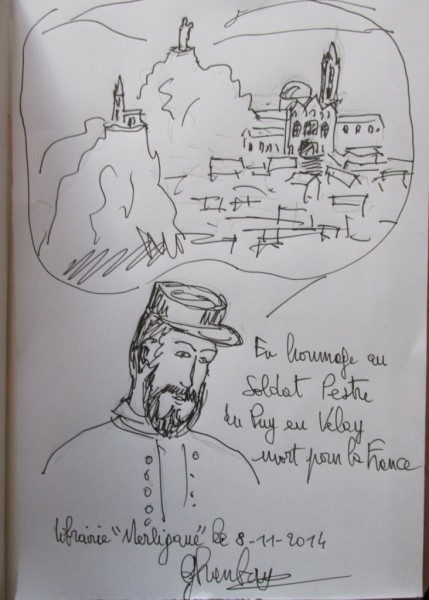 En hommage au
Soldat Pestre
du Puy en Velay
mort pour la France
Librairie "Merlipane" le 8-11-2014